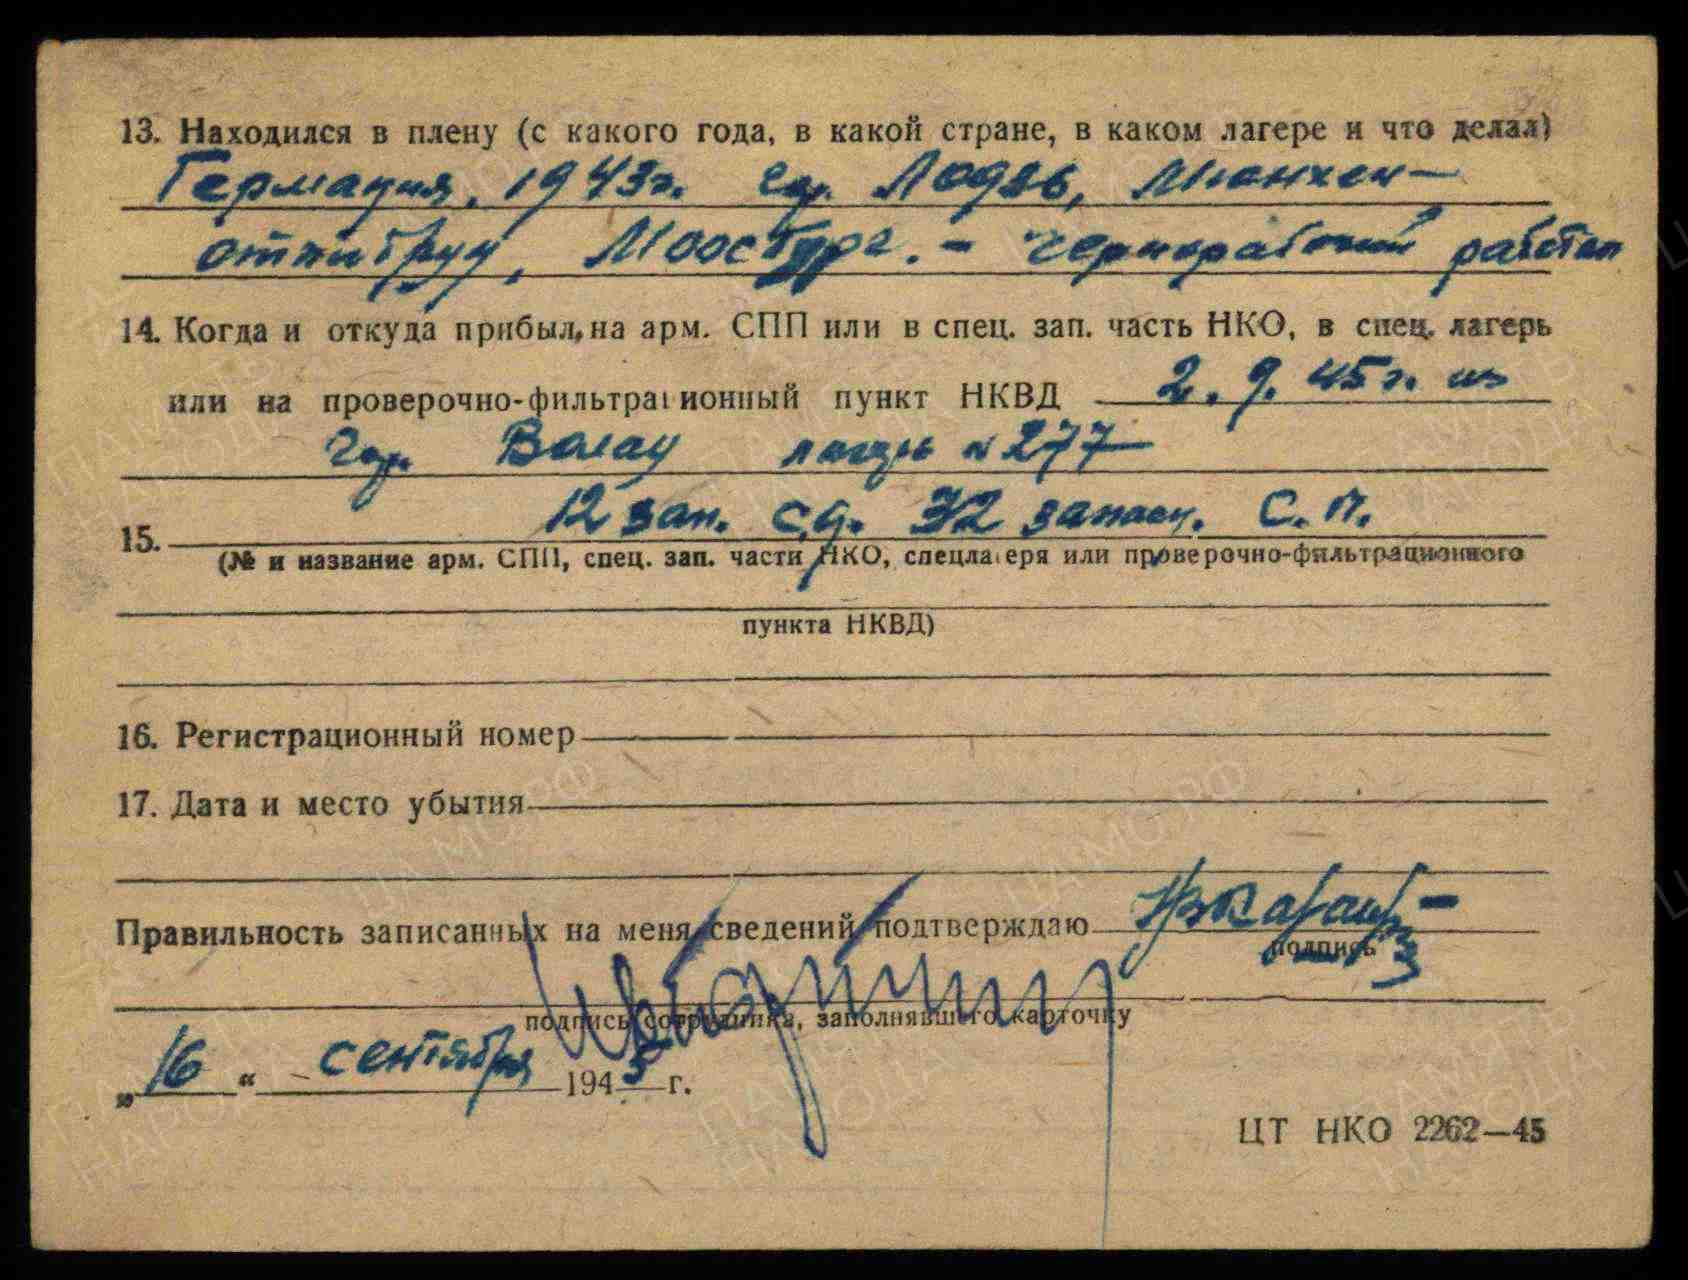 13. Находился в плену (с какого года, в какой стране, в каком лагере и что делал)
Германия, 1943 г. гор. Лодзь, Мюнхен-
Моосбург. - чернорабочий работал
14. Когда и откуда прибыл, на арм. СПП или в спец. зап. часть НКО, в спец. лагерь
или на проверочно-фильтрационный пункт НКВД 2. 9. 45 г. из
гор. Волау лагерь № 277
12 зап. с.д. 32 запасн. С. П.
15.
(№ и название арм. СПП, спец. зап. части НКО, спецлагеря или проверочно-фильтрационного
пункта НКВД)
16. Регистрационный номер
17. Дата и место убытия
Правильность записанных на меня сведений подтверждаю
подпись
подпись сотрудника, заполнявшего карточку
„16“ сентября 1945 г.
ЦТ НКО 2262—45